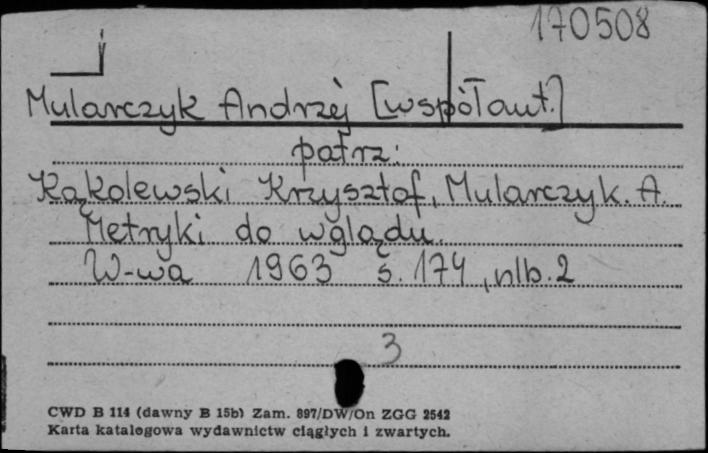 170508
Mularczyk Andrzej [współaut.]
patrz:
Kąkolewski Krzysztof, Mularczyk. A.
Metryki do wglądu.
W-wa 1963 s. 174, nlb. 2
3
CWD B 114 (dawny B 15b) Zam. 897/DW/On ZGG 2542
Karta katalogowa wydawnictw ciągłych i zwartych.